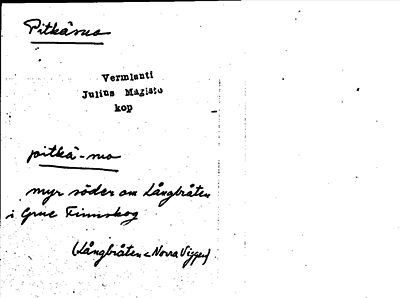 Pitkäsuo
Vermlanti
Julius Mägiste
kop
pitkä-suo
myr söder om Långbråten
i Grue Finnskog
(Långbråten < Norra Viggen)